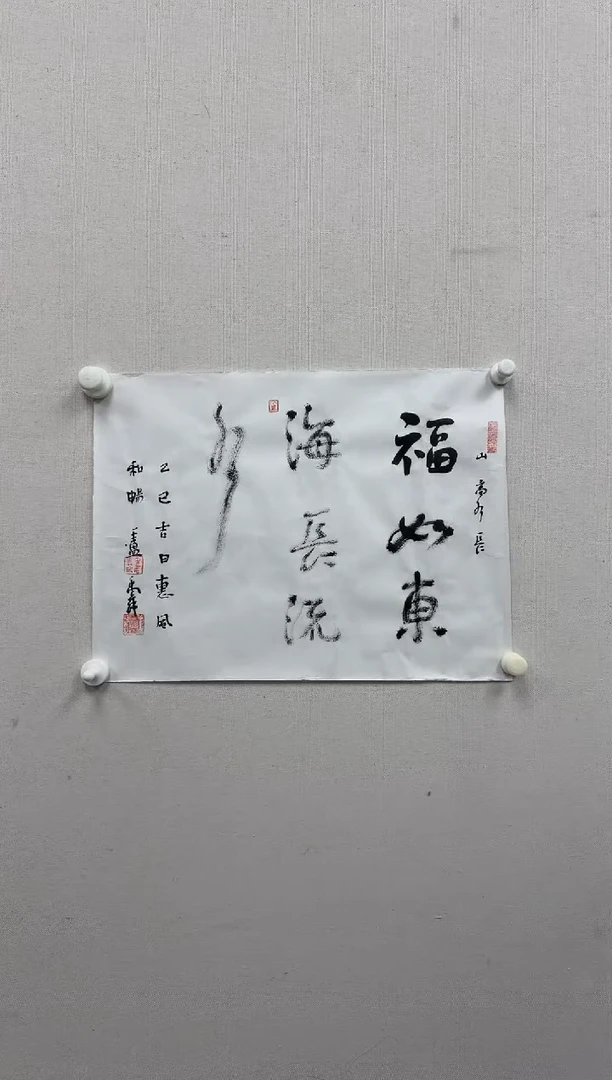 山高水長
福如東
海長流
水
乙巳吉日惠風
和暢